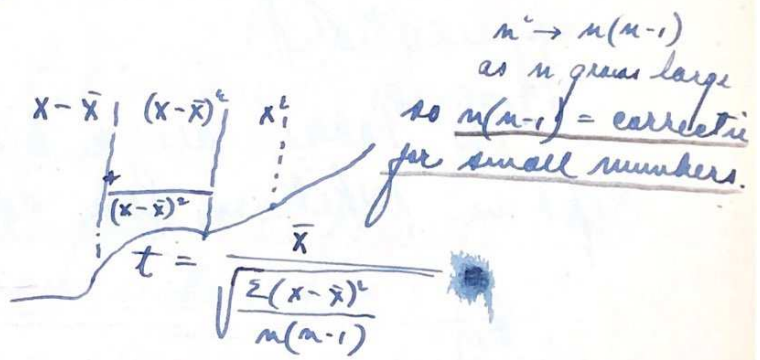 n² → n(n-1)
as n grows large
so n(n-1) = correcti
for small numbers.
x - x̄ | (x-x̄)² | x²
(x-x̄)²
t = x̄ / √(Σ(x-x̄)² / n(n-1))